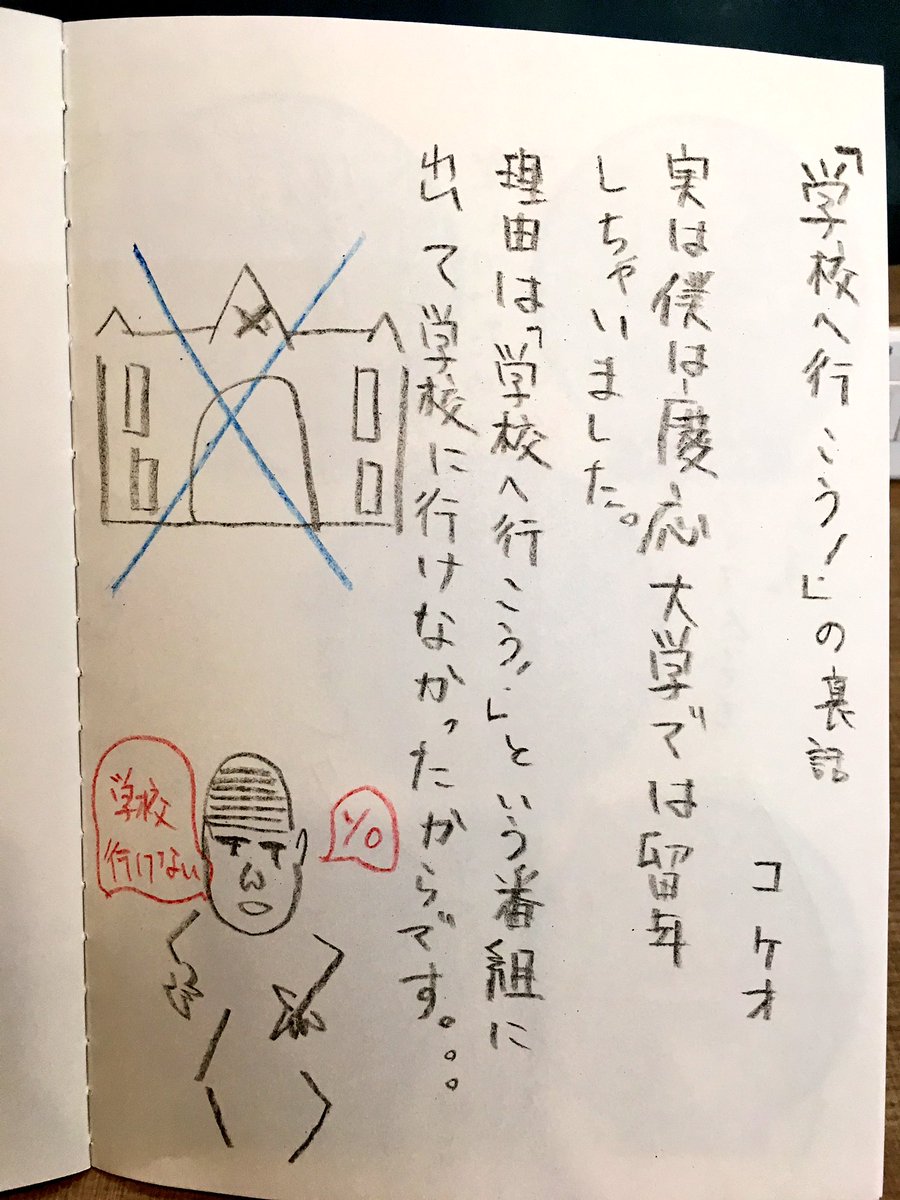 「学校へ行こう！」の裏話
コケオ
実は僕は慶応大学では留年
しちゃいました。
理由は「学校へ行こう！」という番組に
出て学校に行けなかったからです。。。
学校
行けない